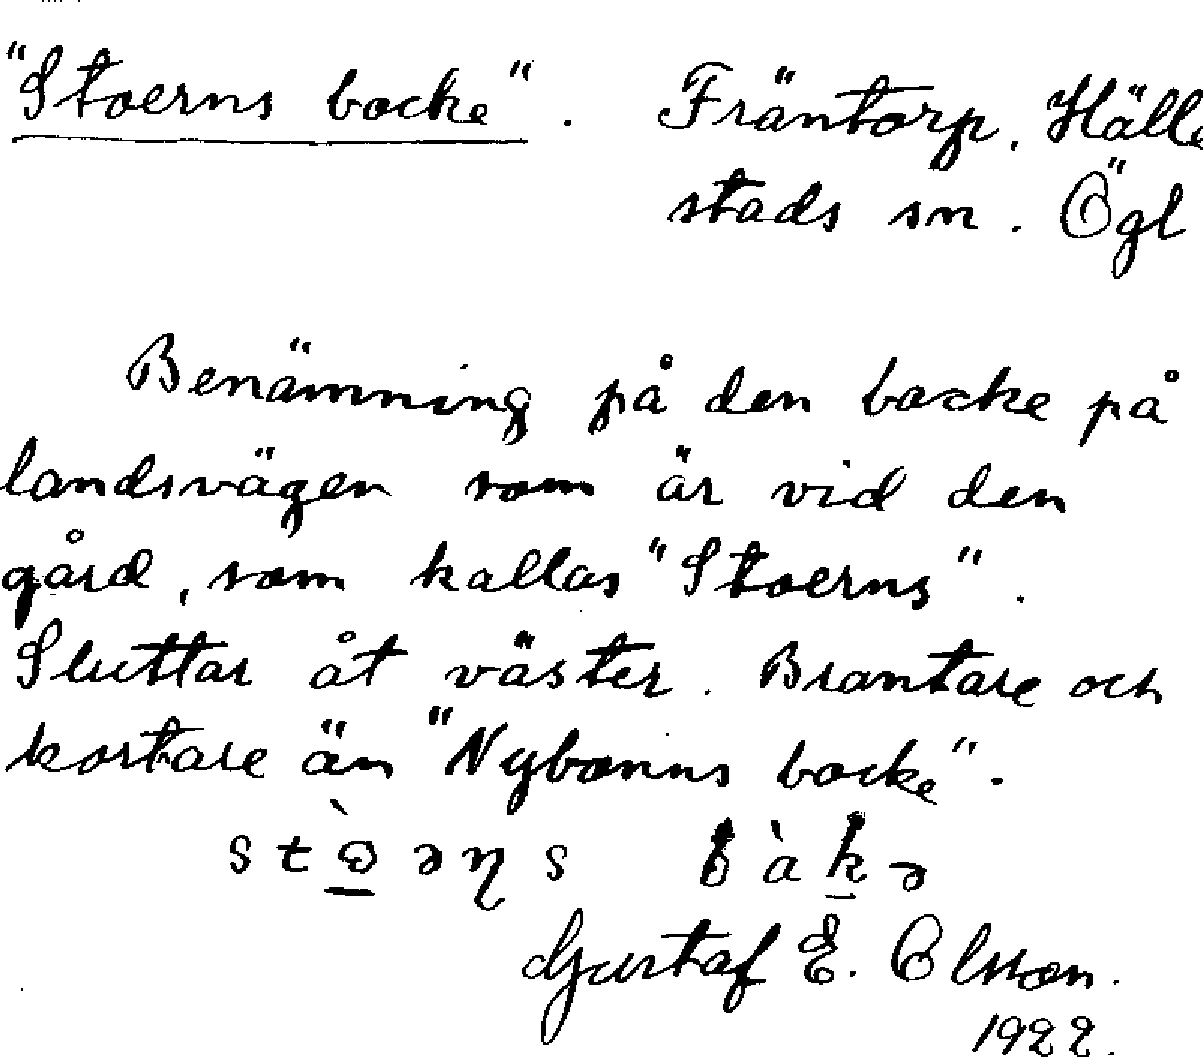 "Stoerns backe". Fräntorp, Hälle
stads sn. Ögl
Benämning på den backe på
landsvägen som är vid den
gård, som kallas "Stoerns".
Sluttar åt väster. Brantare och
kortare än "Nybonns backe".
Gustaf E. Olsson.
1922.